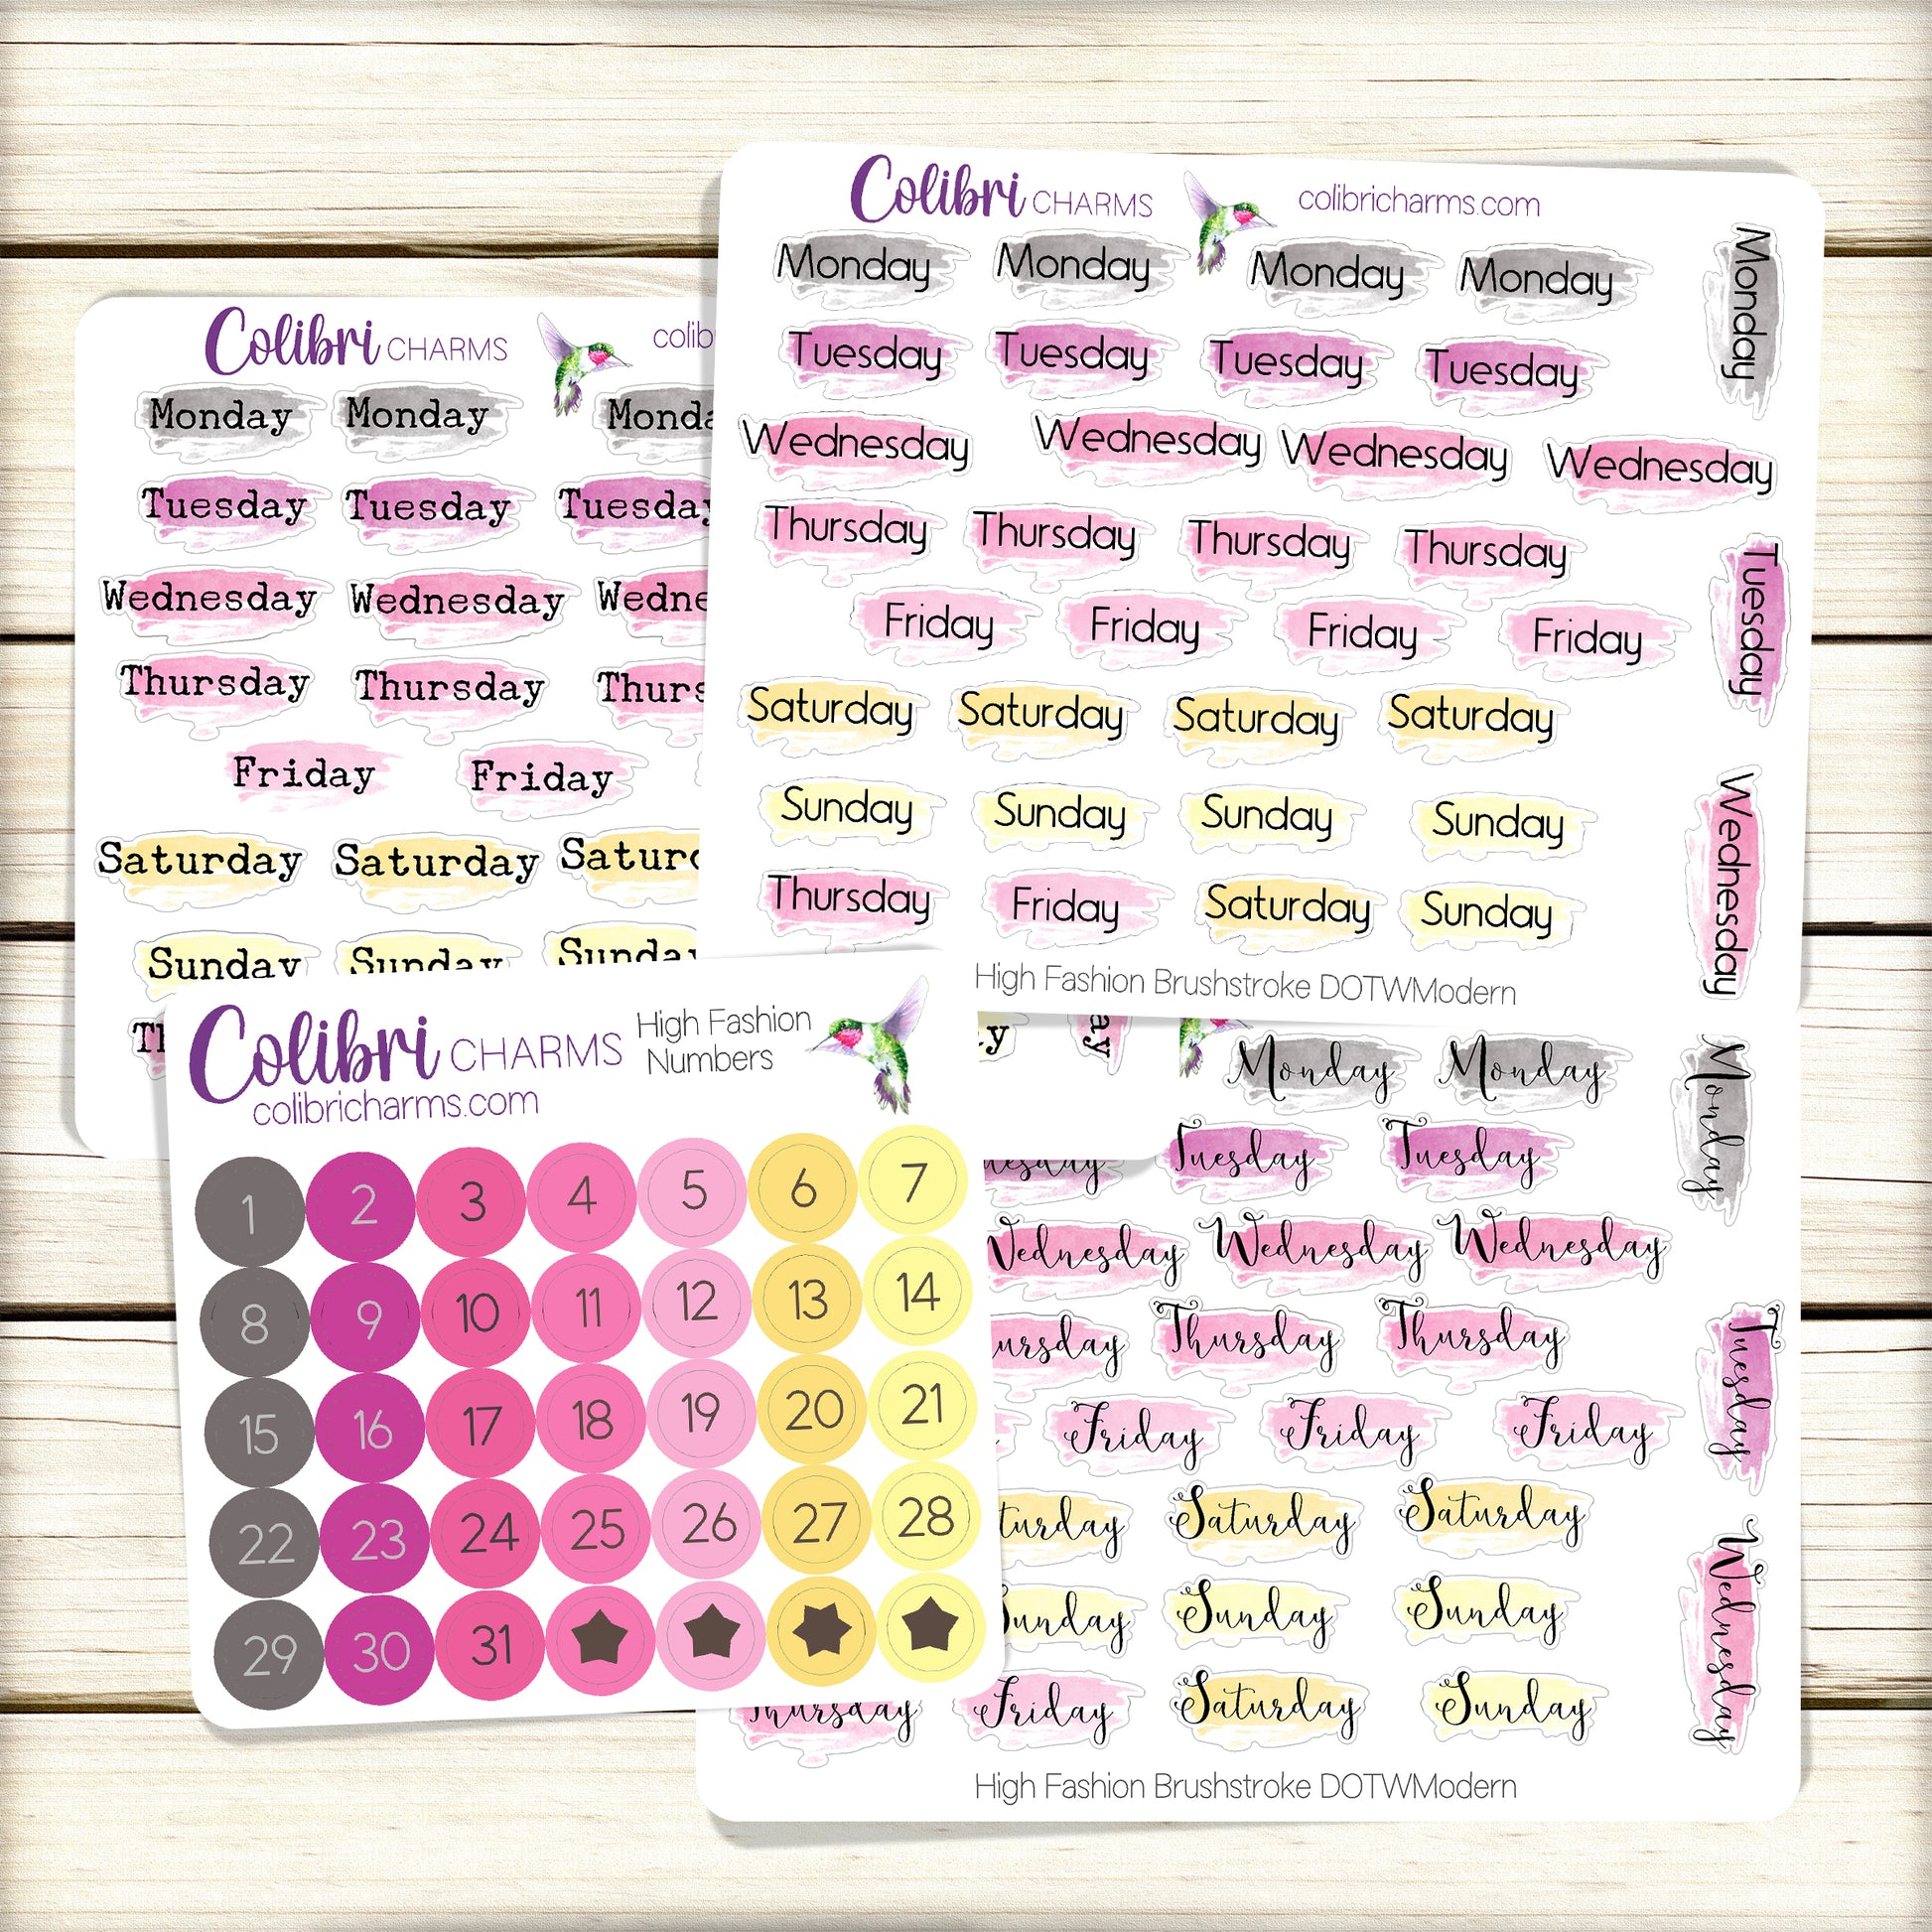 Colibri CHARMS
colibricharms.com
Monday Monday Monday Monday
Tuesday Tuesday Tuesday Tuesday
Wednesday Wednesday Wednesday Wednesday
Thursday Thursday Thursday Thursday
Friday Friday Friday Friday
Saturday Saturday Saturday Saturday
Sunday Sunday Sunday Sunday
Thursday Friday Saturday Sunday
Monday
Tuesday
Wednesday
High Fashion Brushstroke DOTWModern
Colibri CHARMS
colib
Monday Monday Monda
Tuesday Tuesday Tuesday
Wednesday Wednesday Wedne
Thursday Thursday Thurs
Friday Friday
Saturday Saturday Satur
Sunday Sunday Sunday
Th
ay
Colibri CHARMS
colibricharms.com
High Fashion
Numbers
1 2 3 4 5 6 7
8 9 10 11 12 13 14
15 16 17 18 19 20 21
22 23 24 25 26 27 28
29 30 31
Monday Monday
uesday Tuesday Tuesday
Wednesday Wednesday Wednesday
ursday Thursday Thursday
Friday Friday Friday
turday Saturday Saturday
Sunday Sunday Sunday
Thursday Friday Saturday Sunday
Monday
Tuesday
Wednesday
High Fashion Brushstroke DOTWModern